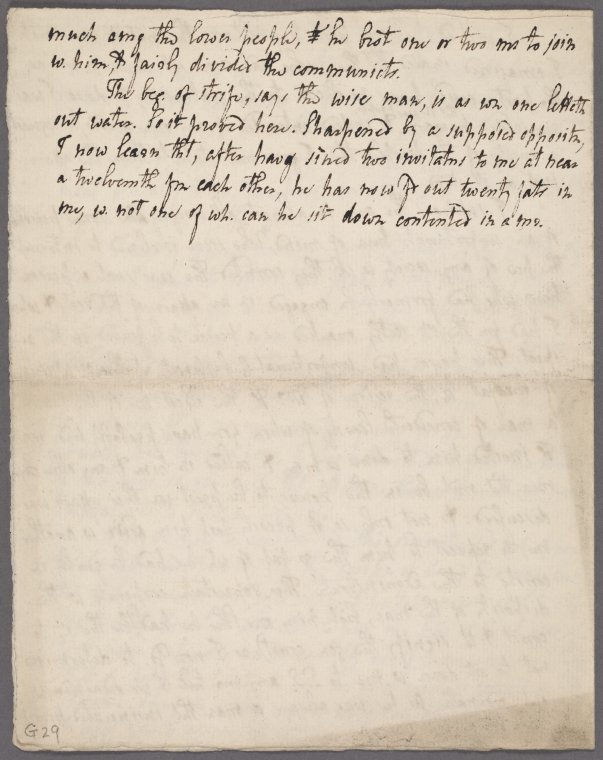 much amg the lower people, & he brot one or two ms to join
w. him, & fairly divided the communicts.
The beg. of strife, says the wise man, is as wn one letteth
out water. So it proved here. Sharpened by a supposed oppositn,
I now learn tht, after havg sined two invitatns to me at near
a twelvemth fm each other, he has now fd out twenty falts in
me, w. not one of wh. can he sit down contented in a mr.
G29